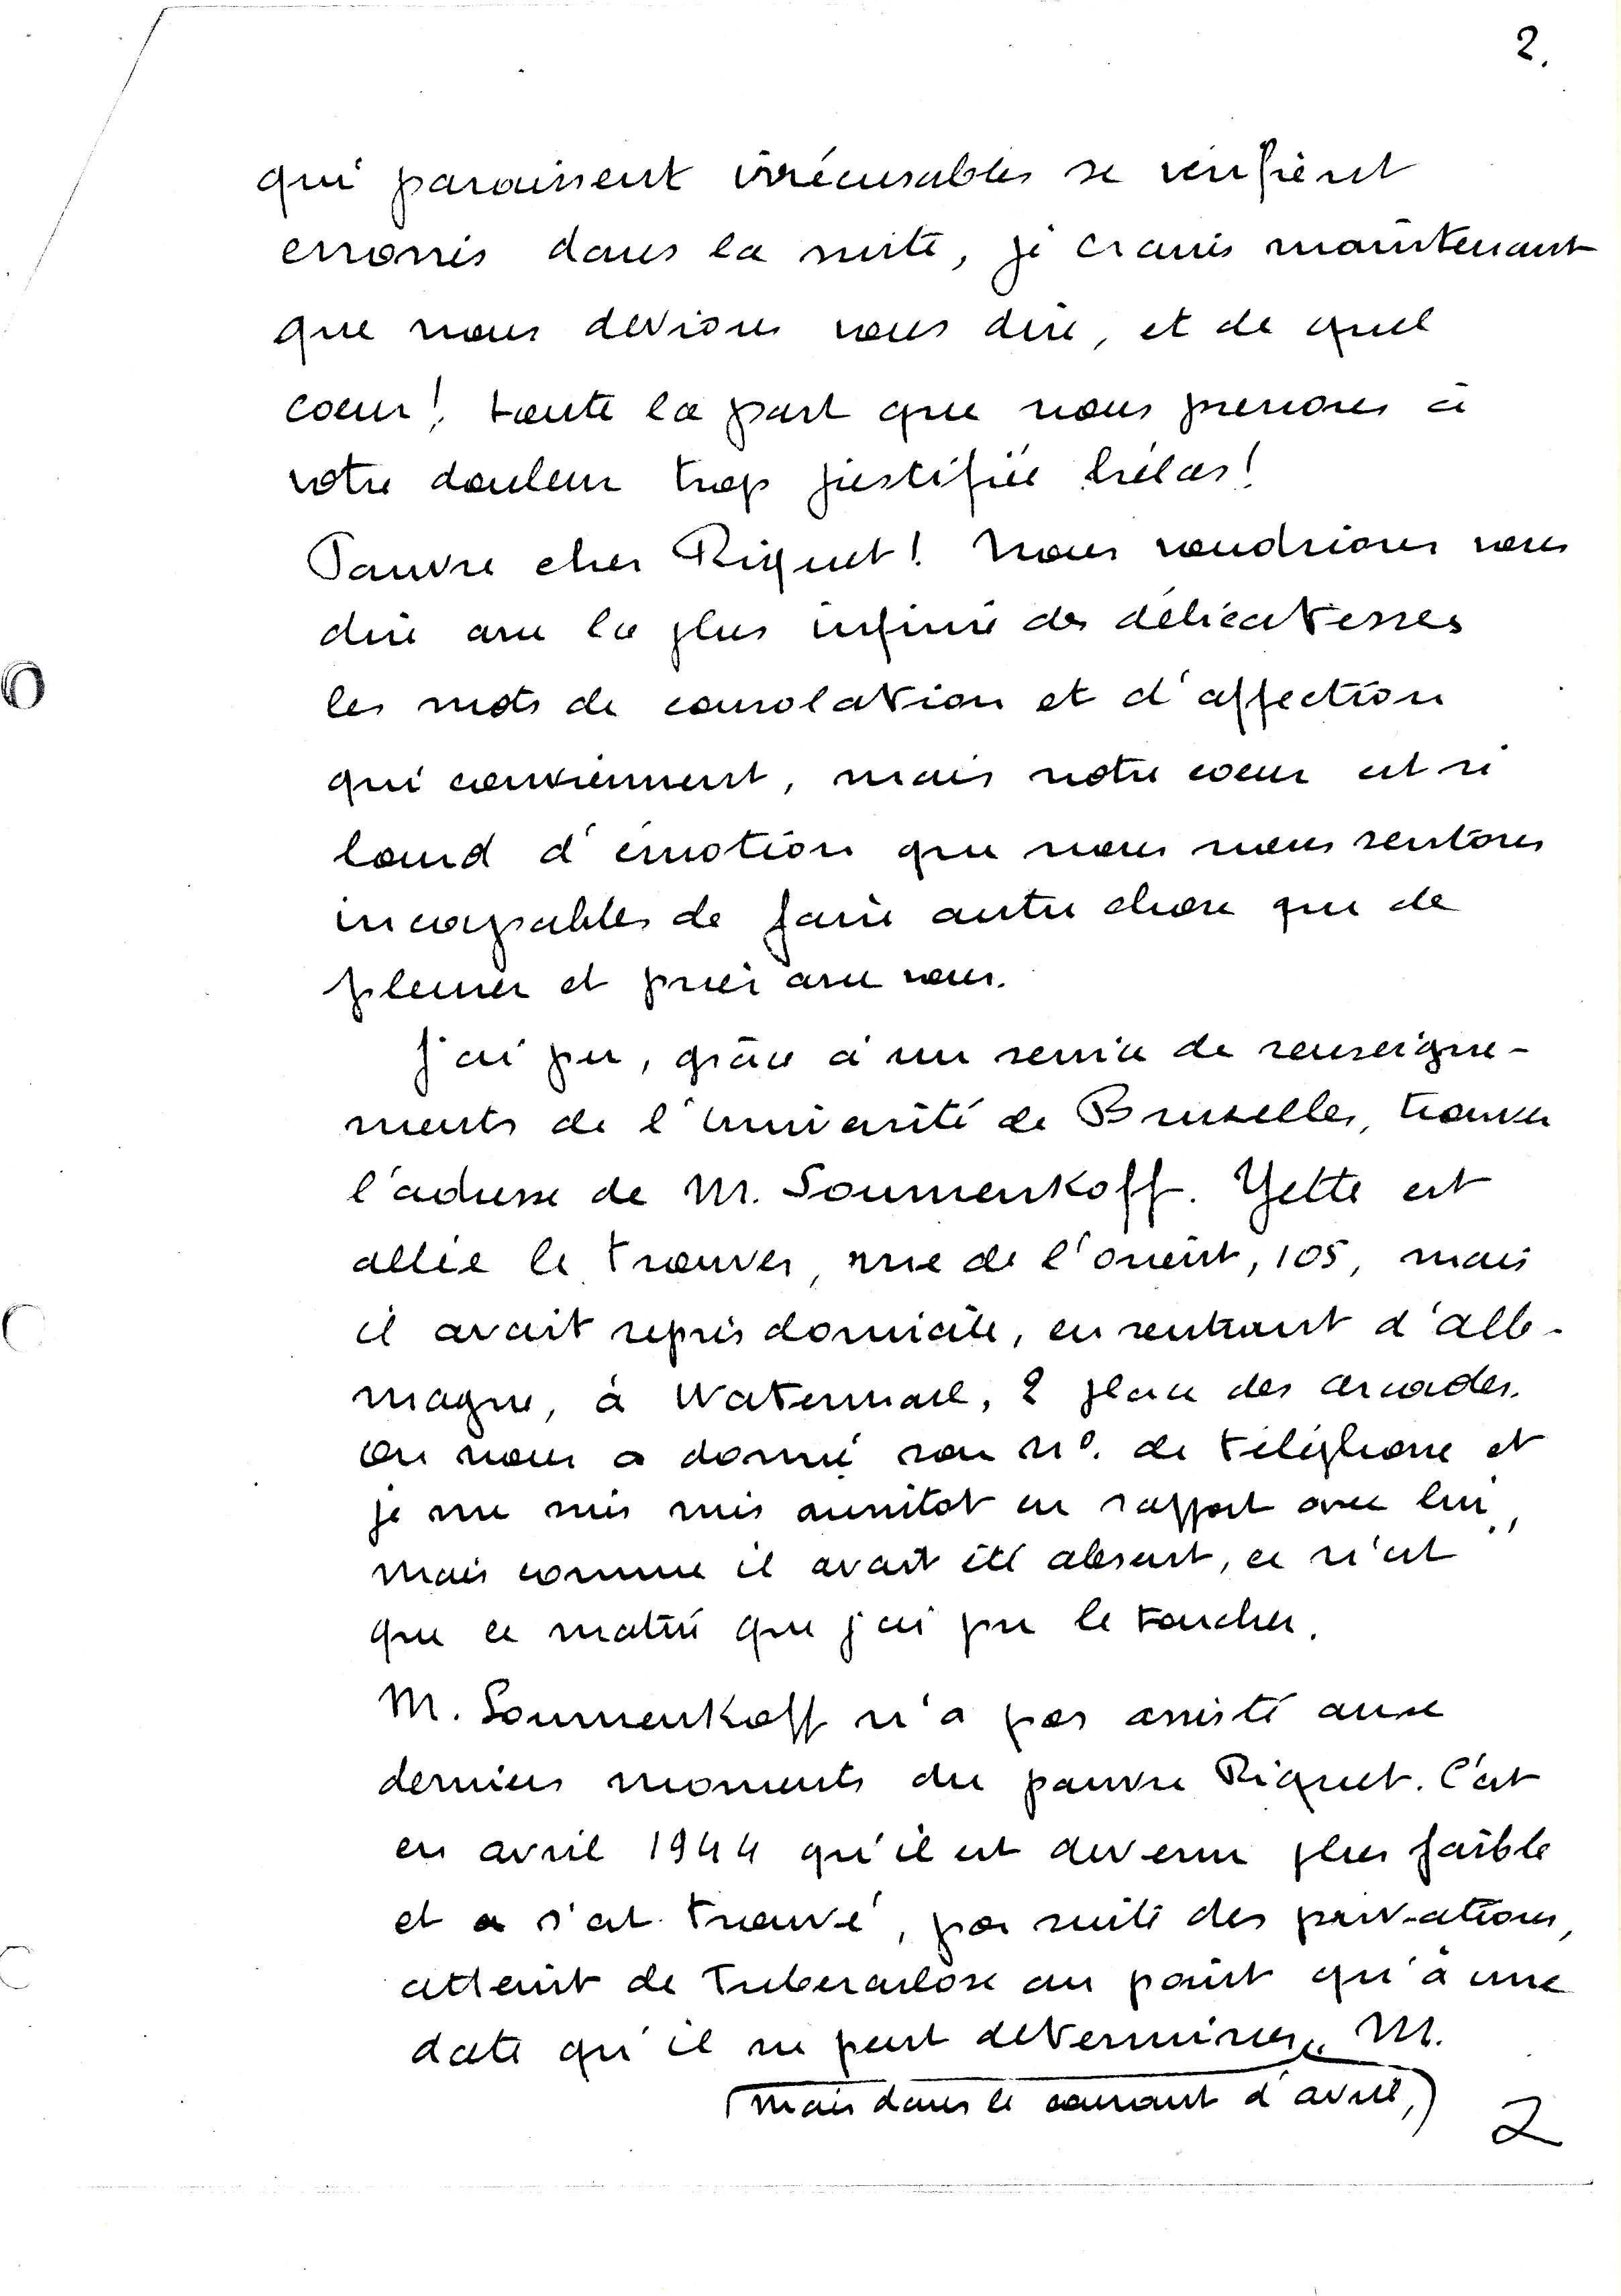 2.
qui paraissent irrécusables se vérifient
erronés dans la suite, je crains maintenant
que nous devions vous dire, et de quel
coeur!, toute la part que nous prenons à
votre douleur trop justifiée hélas!
Pauvre cher Riquet! Nous voudrions vous
dire avec la plus infinie des délicatesses
les mots de consolation et d'affection
qui conviennent, mais notre coeur est si
lourd d'émotion que nous nous sentons
incapables de faire autre chose que de
pleurer et prier avec vous.
J'ai pu, grâce à un service de renseigne-
ments de l'Université de Bruxelles, trouver
l'adresse de M. Soumenkoff. Yette est
allée le trouver, rue de l'orient, 105, mais
il avait repris domicile, en rentrant d'Alle-
magne, à Watermael, 2 place des arcades.
On nous a donné son n°. de téléphone et
je me suis mis aussitôt en rapport avec lui,
mais comme il avait été absent, ce n'est
que ce matin que j'ai pu le toucher.
M. Soumenkoff n'a pas assisté aux
derniers moments du pauvre Riquet. C'est
en avril 1944 qu'il est devenu plus faible
et a s'est trouvé, par suite des privations,
atteint de tuberculose au point qu'à une
date qu'il ne peut déterminer, M.
(mais dans le courant d'avril,)
2